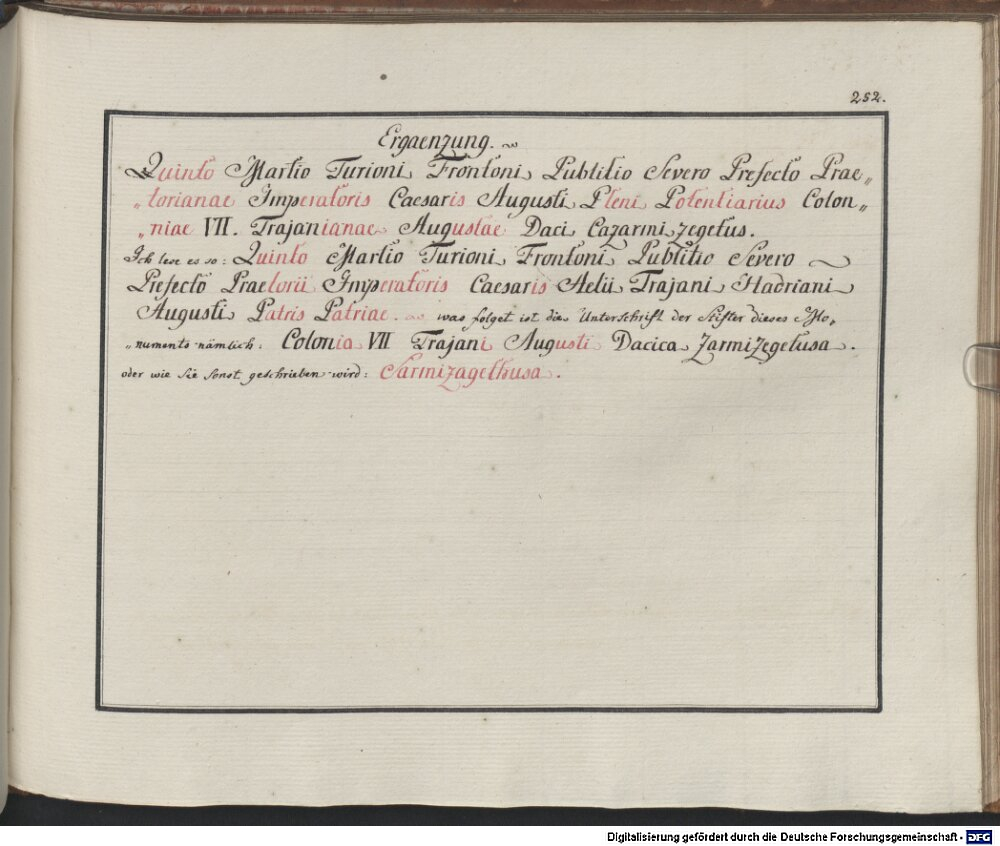 252.
Ergaenzung.
Quinto Martio Turioni Frontoni Publitio Severo Prefecto Prae„
„torianae Imperatoris Caesaris Augusti Pleni Potentiarius Colon„
„niae VII. Trajanianae Augustae Daci Cazarmizegetus.
Ich lese es so: Quinto Martio Turioni Frontoni Publitio Severo
Prefecto Praetorii Imperatoris Caesaris Aelii Trajani Hadriani
Augusti Patris Patriae. was folget ist die Unterschrift der Stifter dieses Mo„
„numents nämlich: Colonia VII Trajani Augusti Dacica Zarmizegetusa.
oder wie sie sonst geschrieben wird: Sarmizagethusa.
Digitalisierung gefördert durch die Deutsche Forschungsgemeinschaft - DFG